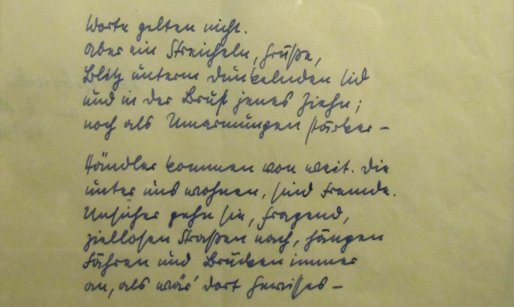 Worte gelten nicht.
Aber ein Streicheln, Grüße,
Blitz unterm dunkelnden Lid
und in der Brust jenes Ziehn;
noch als Umarmungen stärker –
Händler kommen von weit. Die
unter uns wohnen, sind Fremde.
Unsicher gehn sie, fragend,
ziellosen Straßen nach, hängen
Fähren und Brücken immer
an, als wär' dort Gewisses –